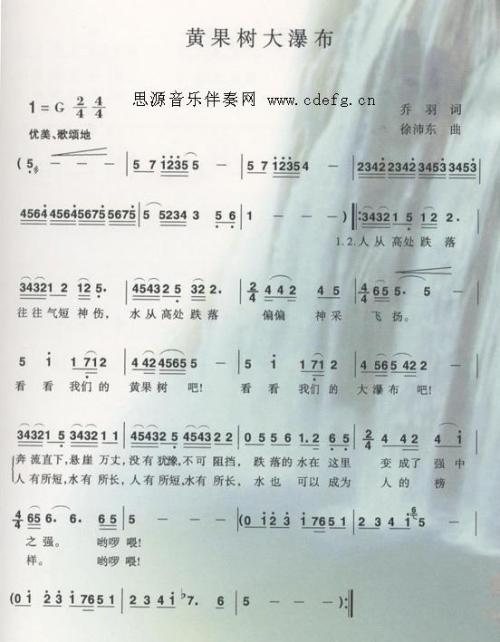 黄果树大瀑布
思源音乐伴奏网 www.cdefg.cn
1 = G 2/4 4/4
乔 羽 词
优美、歌颂地
徐沛东 曲
( 5 — — — | 5 7 1235 5 — — | 5 7 1235 5 — — | 2342 2342 2345 3453
4564 4564 5675 5675 | 5 5234 3 5 6 | 1 — — ) ‖: 34321 5 122 2.
1.2.人从高处跌 落
34321 2 12 5. | 45432 5 522 2. | 2/4 2 4 4 2 | 4/4 65 5. 5 —
往往气短 神伤, 水从高处跌落 偏偏 神采 飞扬。
5 i i 712 | 4 42 4565 5 — | 5 i i 712 | 4 565 5422 —
看 看 我们的 黄果树 吧! 看 看 我们的 大瀑布吧!
34321 5 34321 1 | 45432 5 45432 2 | 0 5 5 6 1. 2 6 5 | 2/4 4 4 2 4 i
奔流直下,悬崖 万丈,没有 犹豫,不可阻挡, 跌落的水在 这里 变成了 强中
人有所短,水有 所长,人有所短,水有所长, 水 也 可以 成为 人 的 榜
4/4 65 6. 6. 65 | 5 — — — | (0 i 2 3 i 7651 | 2 3 4 i 5 —
之强。 哟啰 喂!
样。 哟啰喂!
(0 i 2 3 i 7651 | 2 3 4 i ♭7. 6 | 5 — — ) :‖